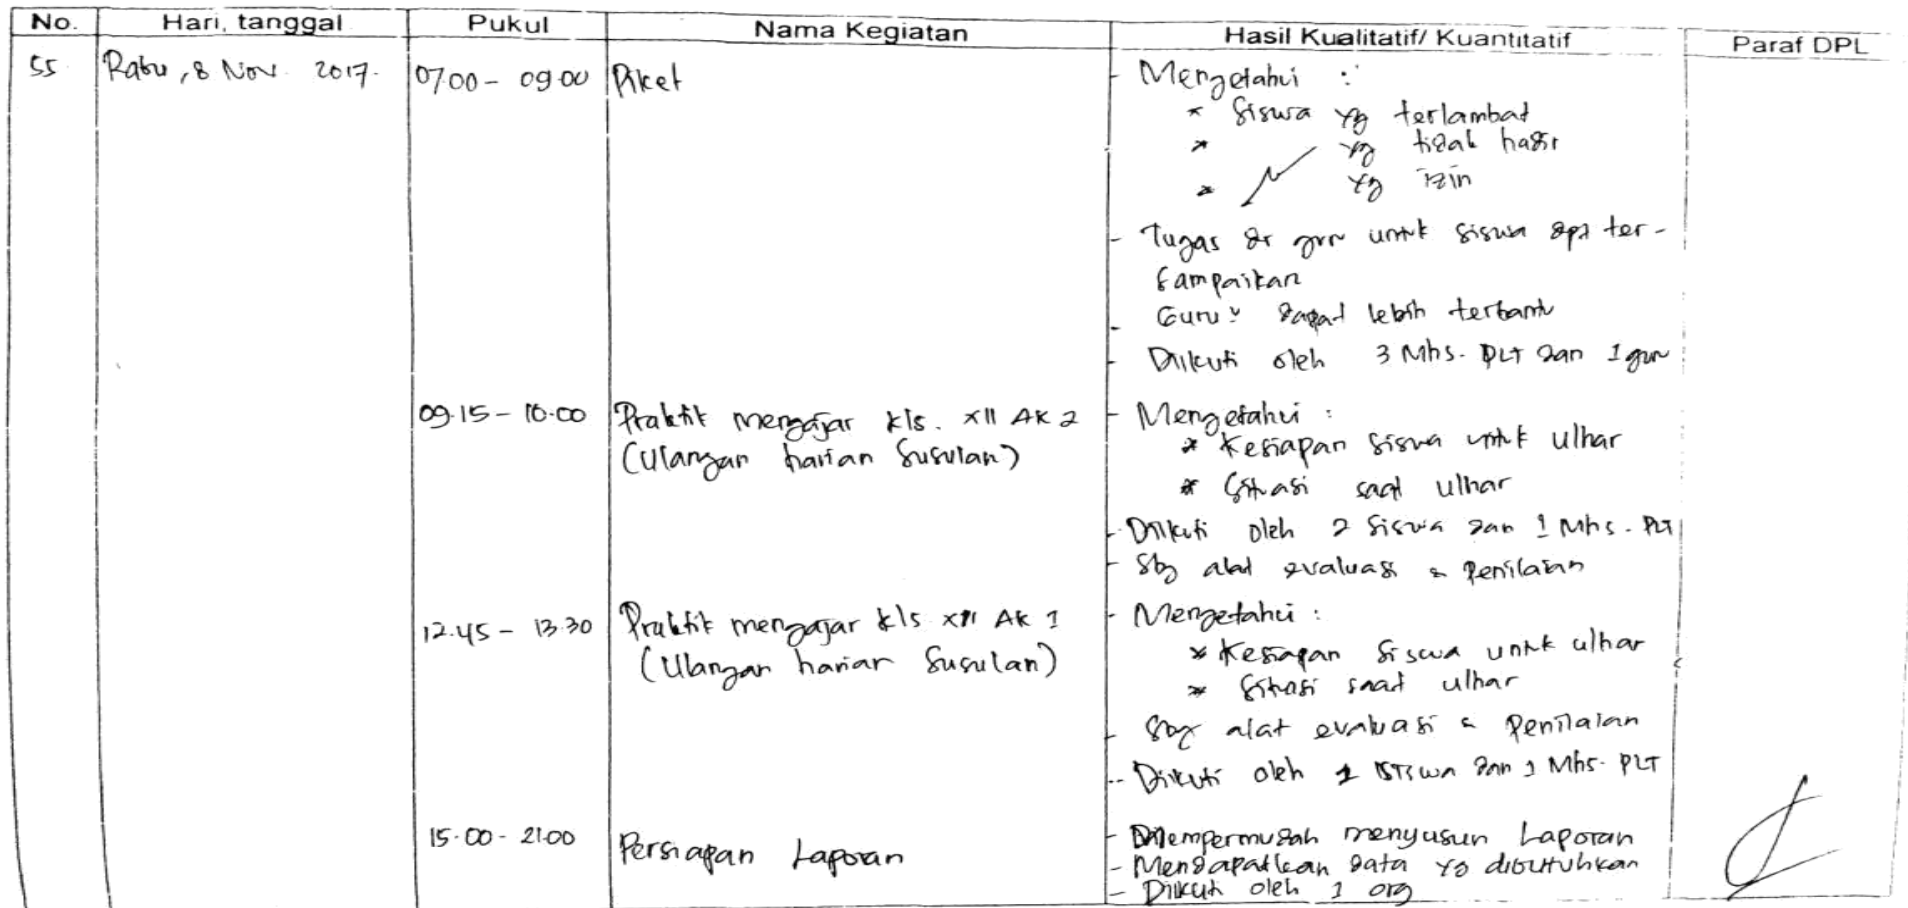 No. Hari, tanggal Pukul Nama Kegiatan Hasil Kualitatif/ Kuantitatif Paraf DPL
55 Rabu, 8 Nov. 2017. 07.00 - 09.00 Piket - Mengetahui :
* Siswa yg terlambat
* yg tidak hadir
* yg izin
- Tugas dr guru untuk siswa dpt ter-
sampaikan
- Guru² dapat lebih terbantu
- Diikuti oleh 3 Mhs. PLT dan 1 guru
09.15 - 10.00 Praktik mengajar kls. XII AK 2 - Mengetahui :
(Ulangan harian Susulan) * Kesiapan siswa untuk ulhar
* Situasi saat ulhar
- Diikuti oleh 2 Siswa dan 1 Mhs. PLT
- Sbg alat evaluasi & Penilaian
12.45 - 13.30 Praktik mengajar kls XII AK 1 - Mengetahui :
(Ulangan harian Susulan) * Kesiapan Siswa untuk ulhar
* Situasi saat ulhar
- Sbg alat evaluasi & Penilaian
- Diikuti oleh 1 Siswa dan 1 Mhs. PLT
15.00 - 21.00 Persiapan Laporan - Mempermudah menyusun Laporan
- Mendapatkan data yg dibutuhkan
- Diikuti oleh 1 org